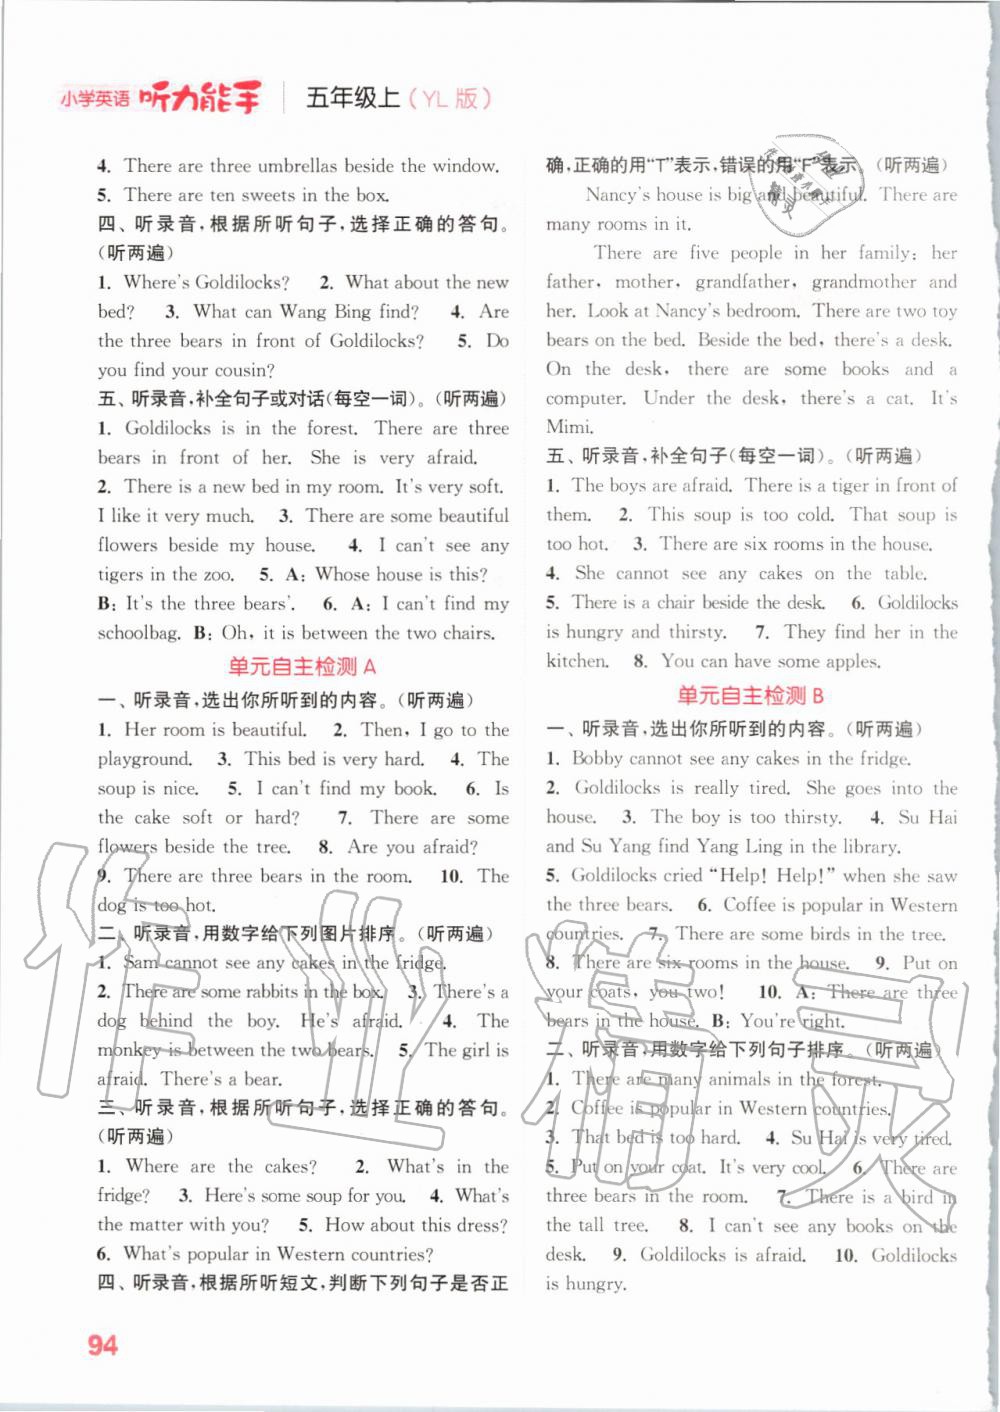 小学英语 听力能手 五年级上(YL版)
4. There are three umbrellas beside the window.
5. There are ten sweets in the box.
四、听录音,根据所听句子,选择正确的答句。
(听两遍)
1. Where's Goldilocks? 2. What about the new
bed? 3. What can Wang Bing find? 4. Are
the three bears in front of Goldilocks? 5. Do
you find your cousin?
五、听录音,补全句子或对话(每空一词)。(听两遍)
1. Goldilocks is in the forest. There are three
bears in front of her. She is very afraid.
2. There is a new bed in my room. It's very soft.
I like it very much. 3. There are some beautiful
flowers beside my house. 4. I can't see any
tigers in the zoo. 5. A: Whose house is this?
B: It's the three bears'. 6. A: I can't find my
schoolbag. B: Oh, it is between the two chairs.
单元自主检测 A
一、听录音,选出你所听到的内容。(听两遍)
1. Her room is beautiful. 2. Then, I go to the
playground. 3. This bed is very hard. 4. The
soup is nice. 5. I can't find my book. 6. Is
the cake soft or hard? 7. There are some
flowers beside the tree. 8. Are you afraid?
9. There are three bears in the room. 10. The
dog is too hot.
二、听录音,用数字给下列图片排序。(听两遍)
1. Sam cannot see any cakes in the fridge.
2. There are some rabbits in the box. 3. There's a
dog behind the boy. He's afraid. 4. The
monkey is between the two bears. 5. The girl is
afraid. There's a bear.
三、听录音,根据所听句子,选择正确的答句。
(听两遍)
1. Where are the cakes? 2. What's in the
fridge? 3. Here's some soup for you. 4. What's
the matter with you? 5. How about this dress?
6. What's popular in Western countries?
四、听录音,根据所听短文,判断下列句子是否正
94
确,正确的用“T”表示,错误的用“F”表示。(听两遍)
Nancy's house is big and beautiful. There are
many rooms in it.
There are five people in her family: her
father, mother, grandfather, grandmother and
her. Look at Nancy's bedroom. There are two toy
bears on the bed. Beside the bed, there's a desk.
On the desk, there are some books and a
computer. Under the desk, there's a cat. It's
Mimi.
五、听录音,补全句子(每空一词)。(听两遍)
1. The boys are afraid. There is a tiger in front of
them. 2. This soup is too cold. That soup is
too hot. 3. There are six rooms in the house.
4. She cannot see any cakes on the table.
5. There is a chair beside the desk. 6. Goldilocks
is hungry and thirsty. 7. They find her in the
kitchen. 8. You can have some apples.
单元自主检测 B
一、听录音,选出你所听到的内容。(听两遍)
1. Bobby cannot see any cakes in the fridge.
2. Goldilocks is really tired. She goes into the
house. 3. The boy is too thirsty. 4. Su Hai
and Su Yang find Yang Ling in the library.
5. Goldilocks cried “Help! Help!” when she saw
the three bears. 6. Coffee is popular in Western
countries. 7. There are some birds in the tree.
8. There are six rooms in the house. 9. Put on
your coats, you two! 10. A: There are three
bears in the house. B: You're right.
二、听录音,用数字给下列句子排序。(听两遍)
1. There are many animals in the forest.
2. Coffee is popular in Western countries.
3. That bed is too hard. 4. Su Hai is very tired.
5. Put on your coat. It's very cool. 6. There are
three bears in the room. 7. There is a bird in
the tall tree. 8. I can't see any books on the
desk. 9. Goldilocks is afraid. 10. Goldilocks
is hungry.
作业精灵